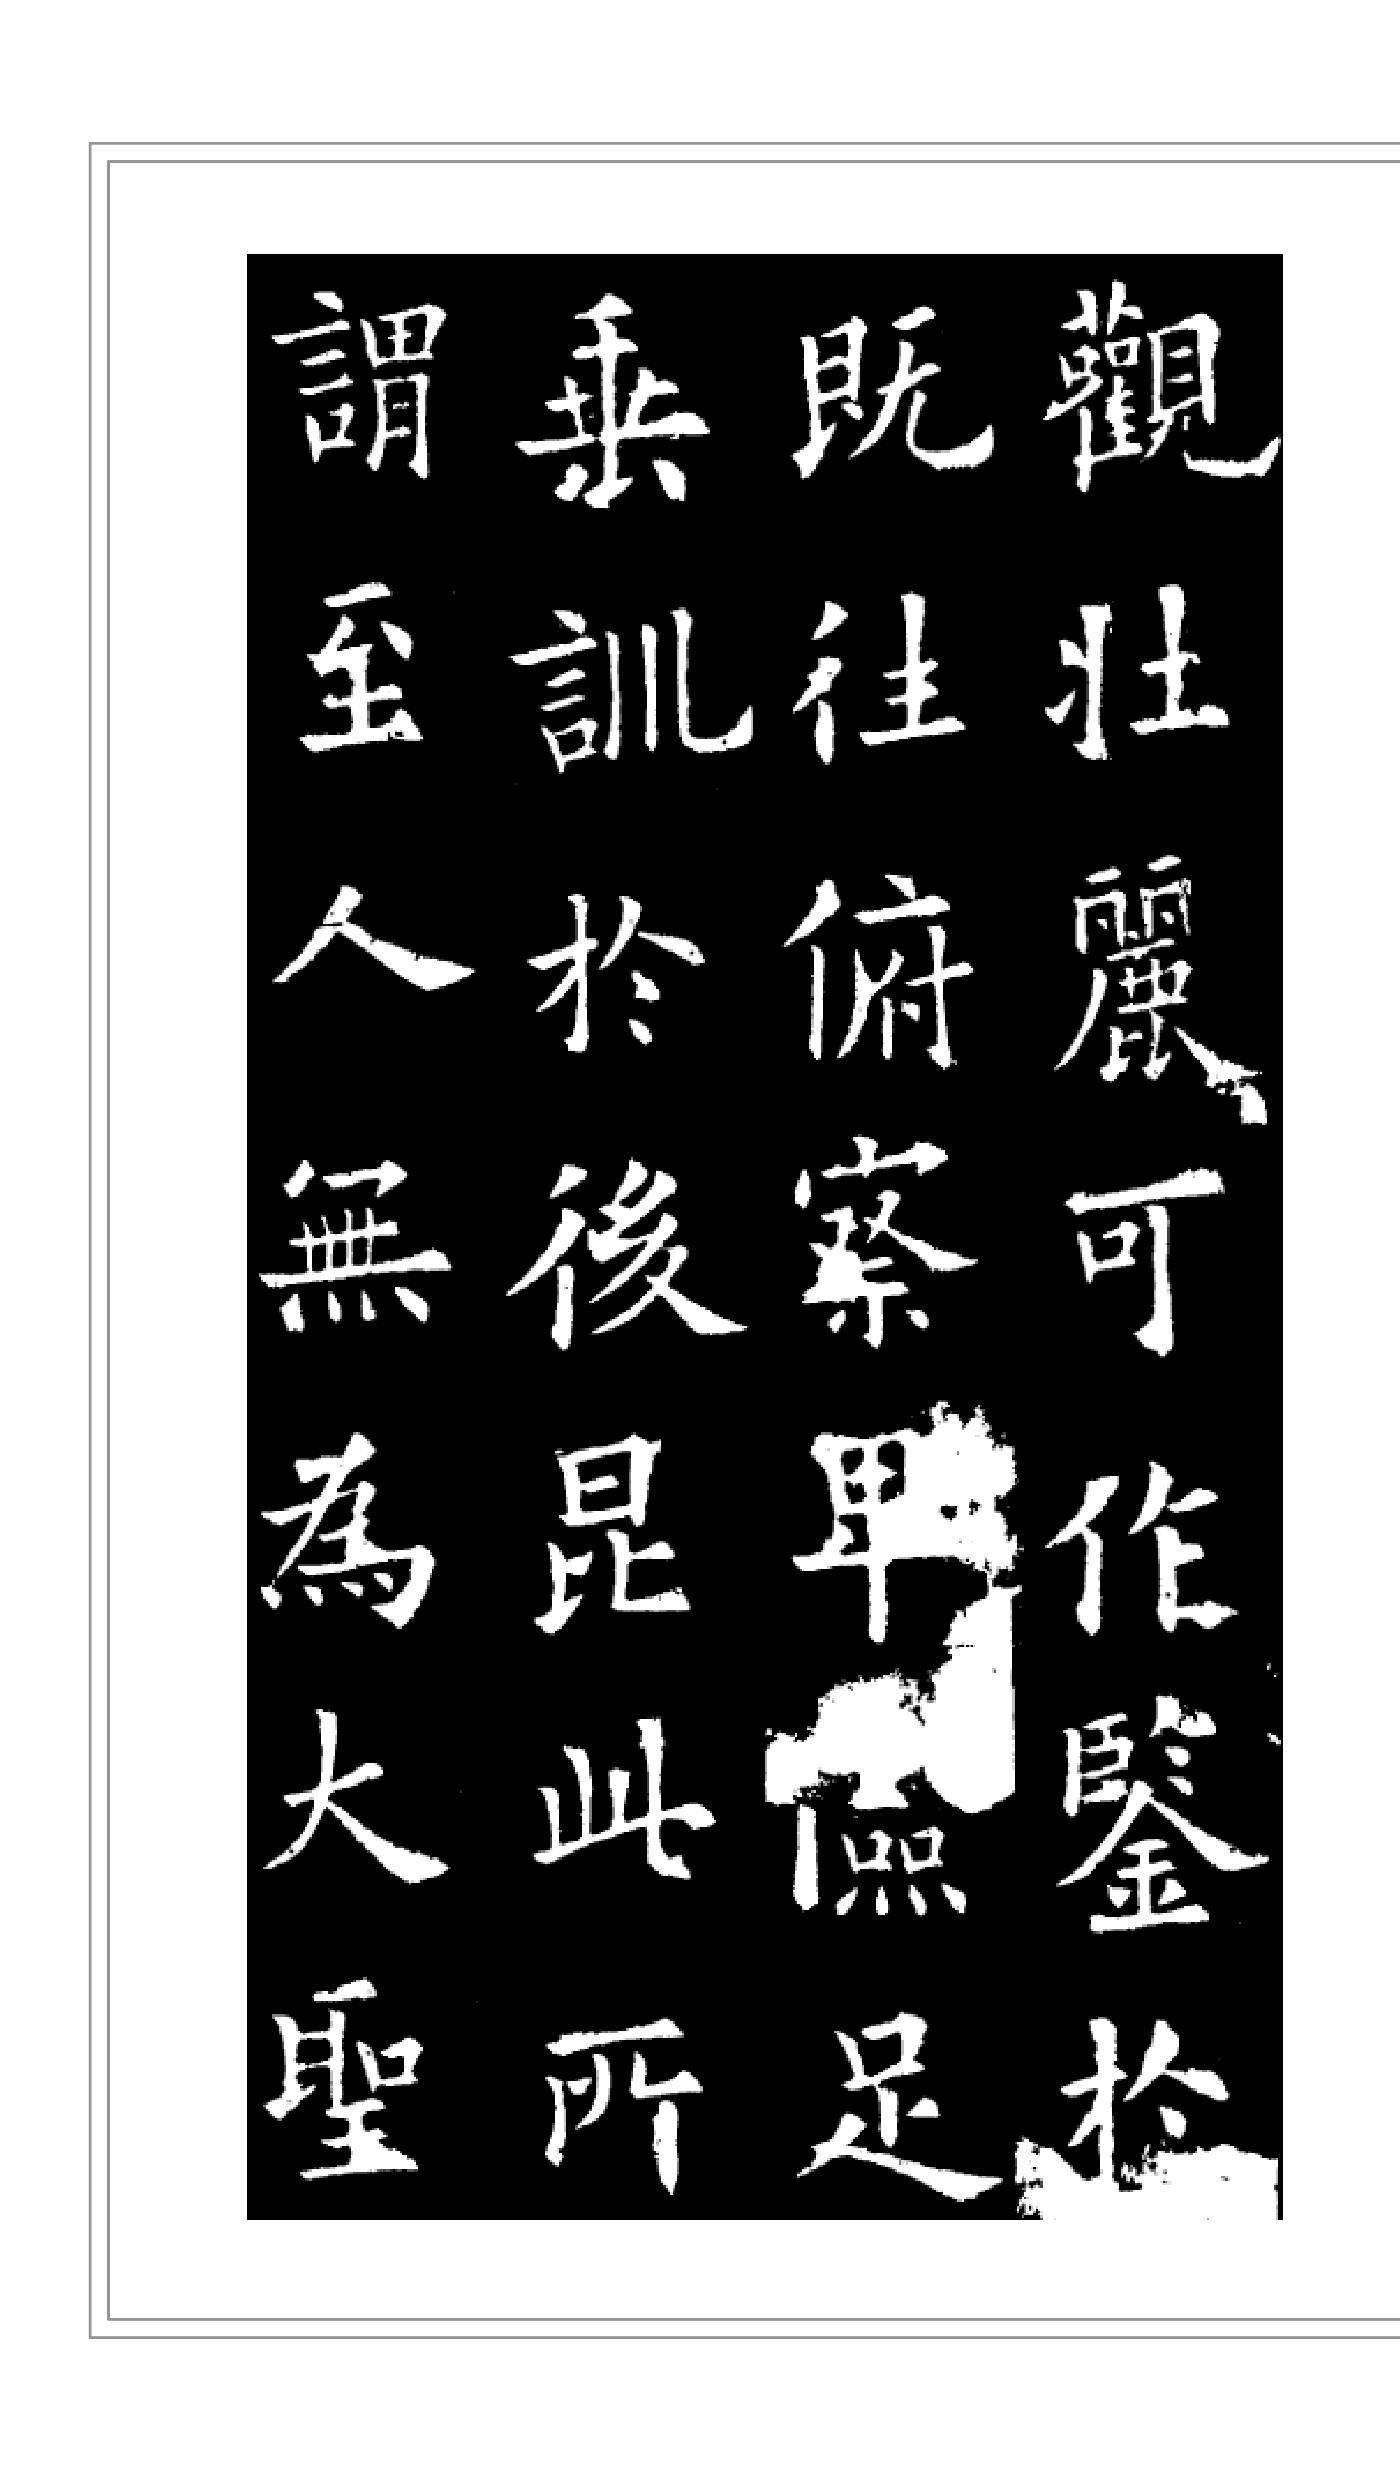 觀壯麗可作鑒於
既往俯察卑儉足
垂訓於後昆此所
謂至人無為大聖